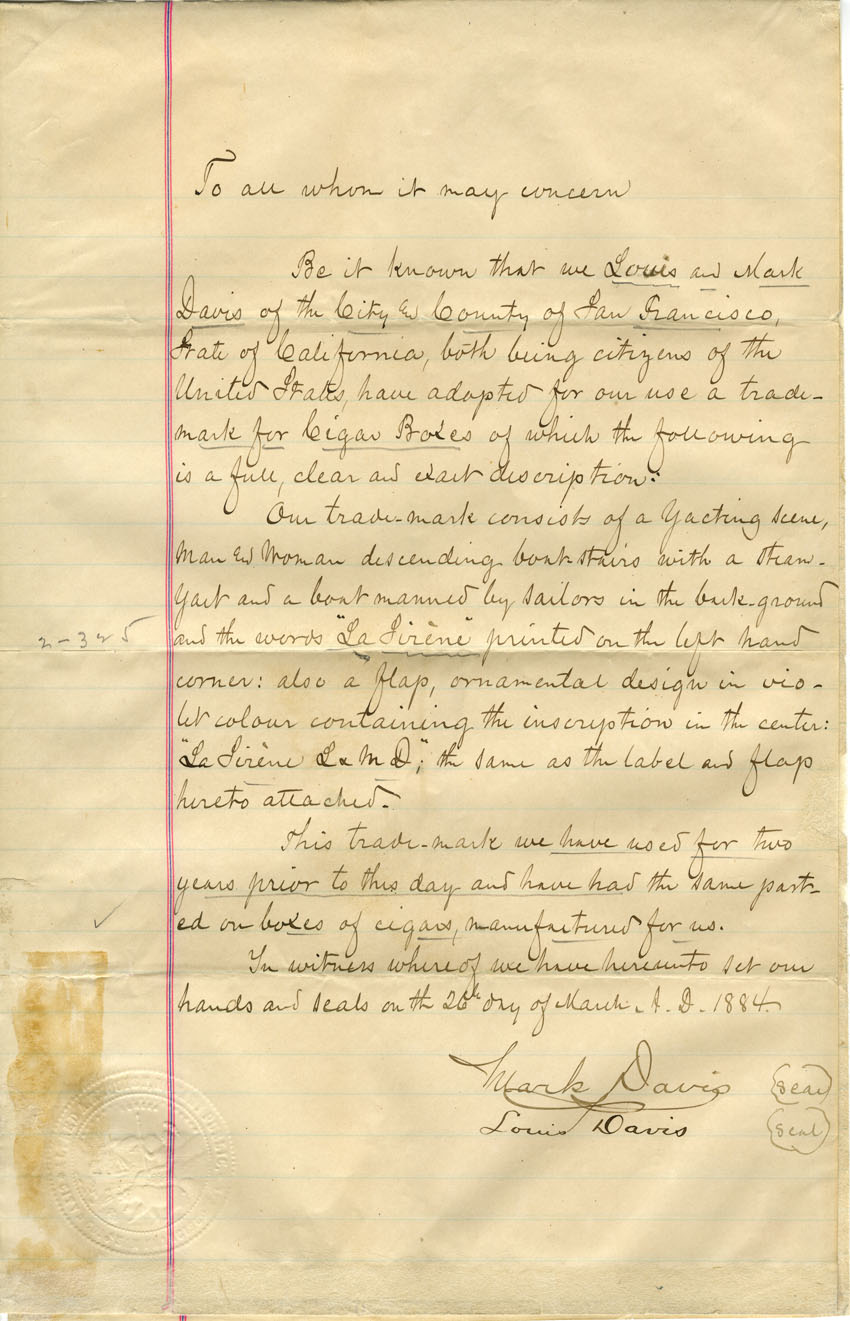 To all whom it may concern
Be it known that we Louis and Mark
Davis of the City & County of San Francisco,
State of California, both being citizens of the
United States, have adopted for our use a trade-
mark for Cigar Boxes of which the following
is a full, clear and exact description:
Our trade-mark consists of a Yacting scene,
Man & Woman descending boat stairs with a steam-
Yact and a boat manned by sailors in the back-ground
2-325
and the words "La Sirène" printed on the left hand
corner: also a flap, ornamental design in vio-
let colour containing the inscryption in the center:
"La Sirène L & M D"; the same as the label and flap
hereto attached.
This trade-mark we have used for two
years prior to this day and have had the same past-
ed on boxes of cigars, manufactured for us.
In witness whereof we have hereunto set our
hands and seals on the 26th day of March A. D. 1884.
Mark Davis (seal)
Louis Davis (seal)